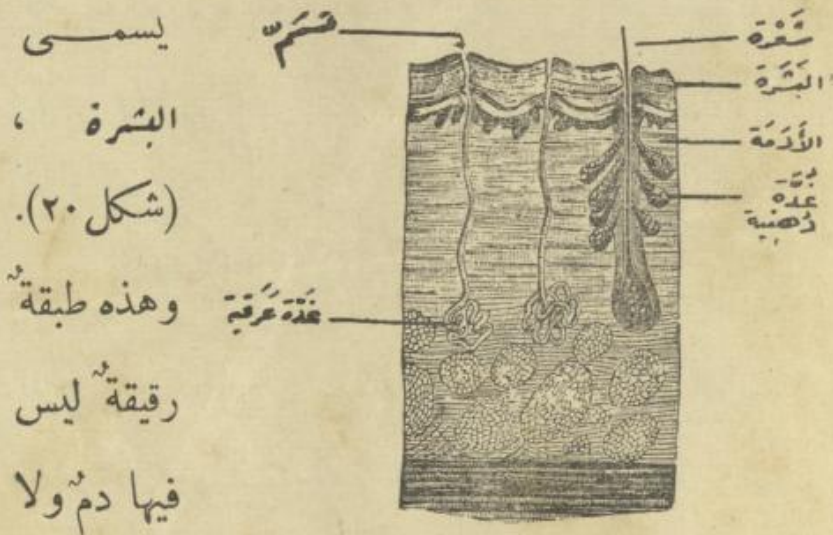 يسمى
البشرة ،
(شكل ٢٠).
وهذه طبقةٌ
رقيقةٌ ليس
فيها دمٌ ولا
مَسَمّ
غدّة عَرَقية
شَعْرَة
البَشَرَة
الأَدَمَة
غُدَّة
دُهنية